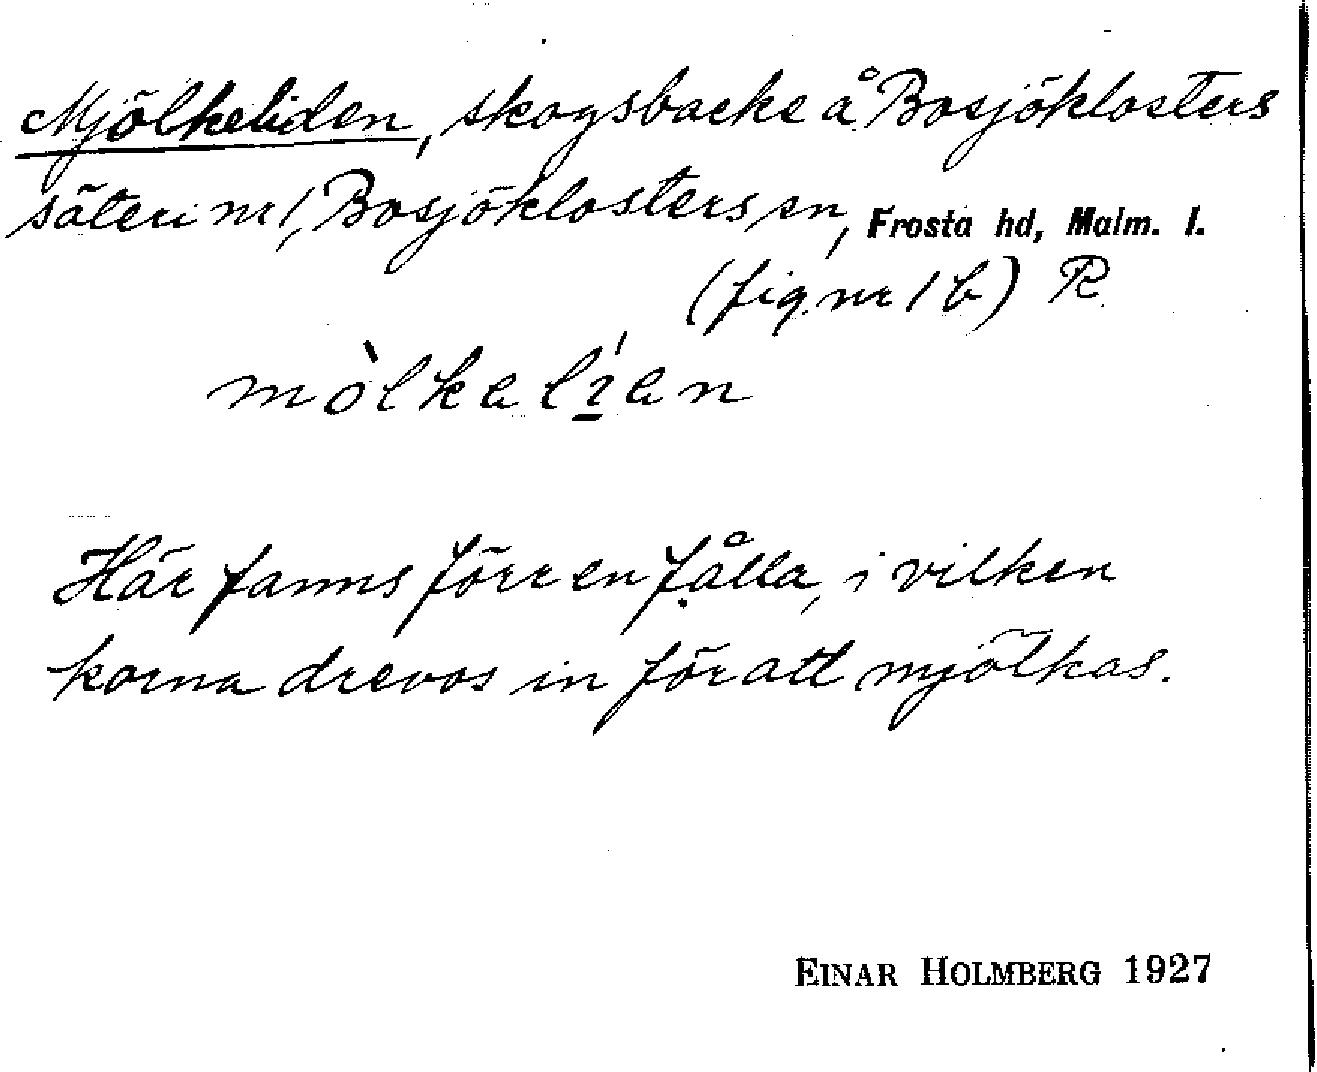 Mjölkeliden, skogsbacke å Bosjöklosters
säteri nr 1, Bosjöklosters sn, Frosta hd, Malm. l.
(fig. nr 1 b) R
mòlkalı̱́an
Här fanns förr en fålla, i vilken
korna drevos in för att mjölkas.
EINAR HOLMBERG 1927